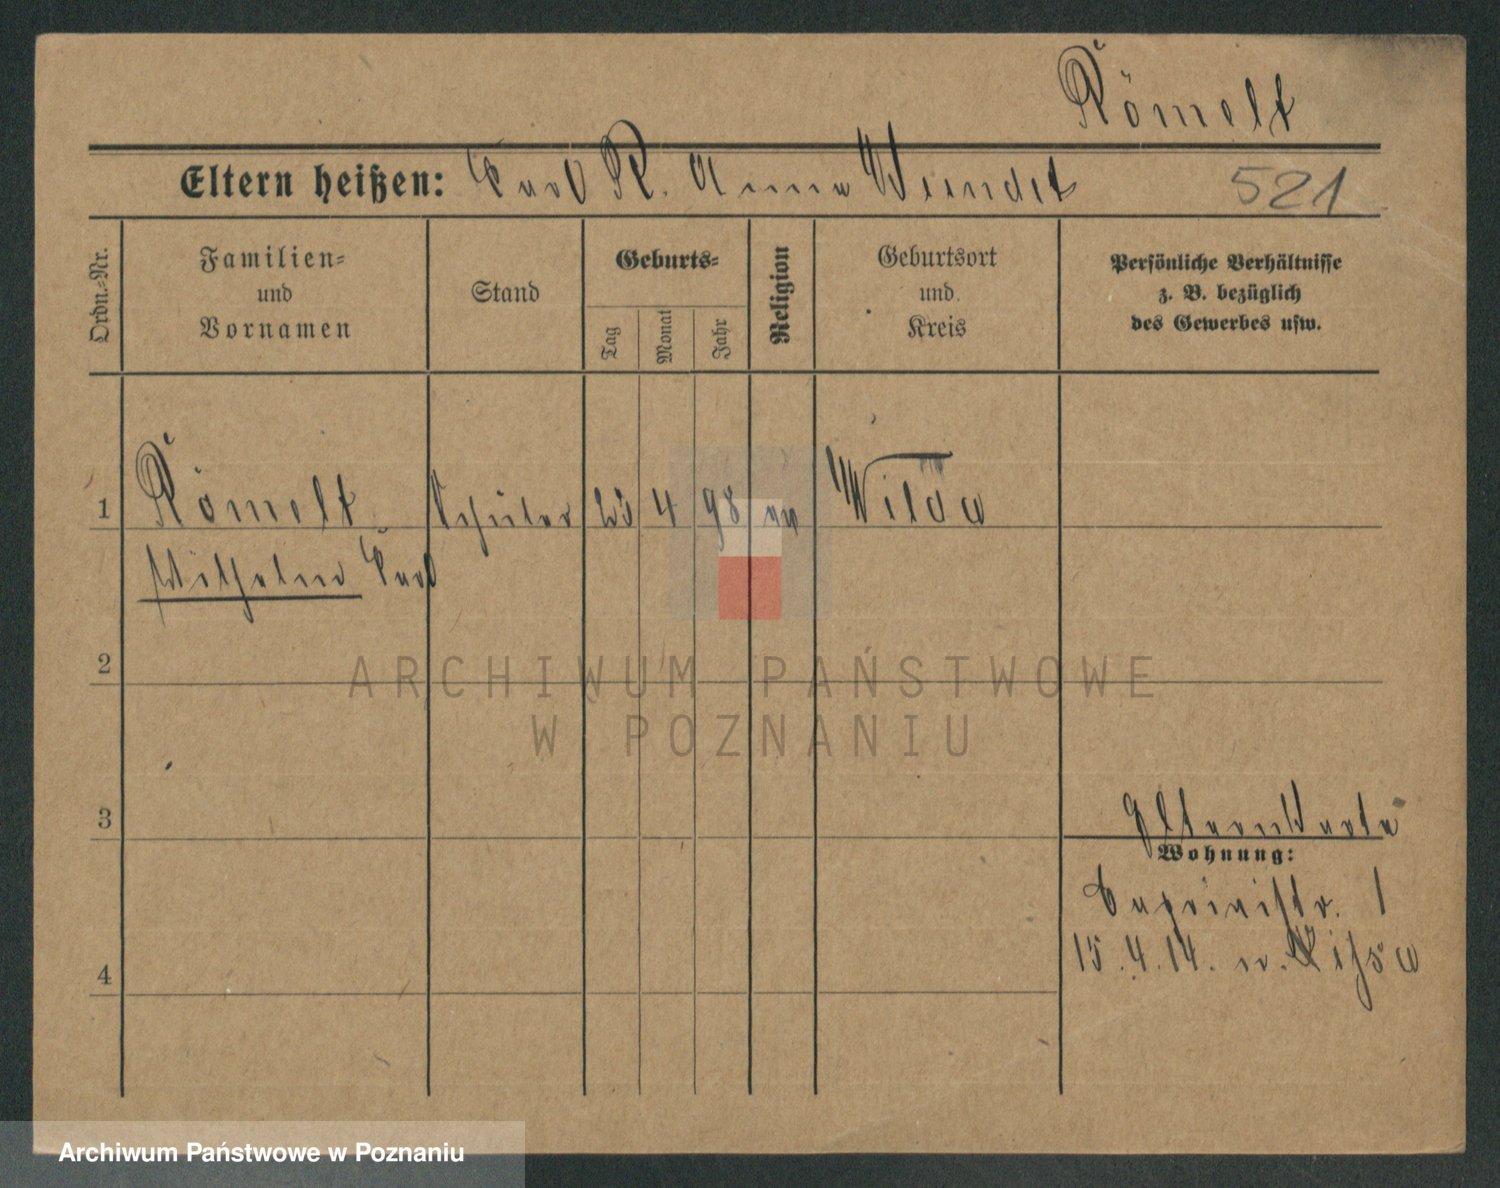 Römelt
Eltern heißen: Carl R. Anna Wundet
521
Ordn.-Nr.
Familien-
und
Vornamen
Stand
Geburts-
Tag
Monat
Jahr
Religion
Geburtsort
und
Kreis
Persönliche Verhältnisse
z. B. bezüglich
des Gewerbes usw.
1 Römelt Schüler 23 4 98 ev Wilda
Wilhelm Carl
2
ARCHIWUM PAŃSTWOWE
W POZNANIU
3
Elternkarte
Wohnung:
Caprivistr. 1
15.4.14. n.
4
Archiwum Państwowe w Poznaniu